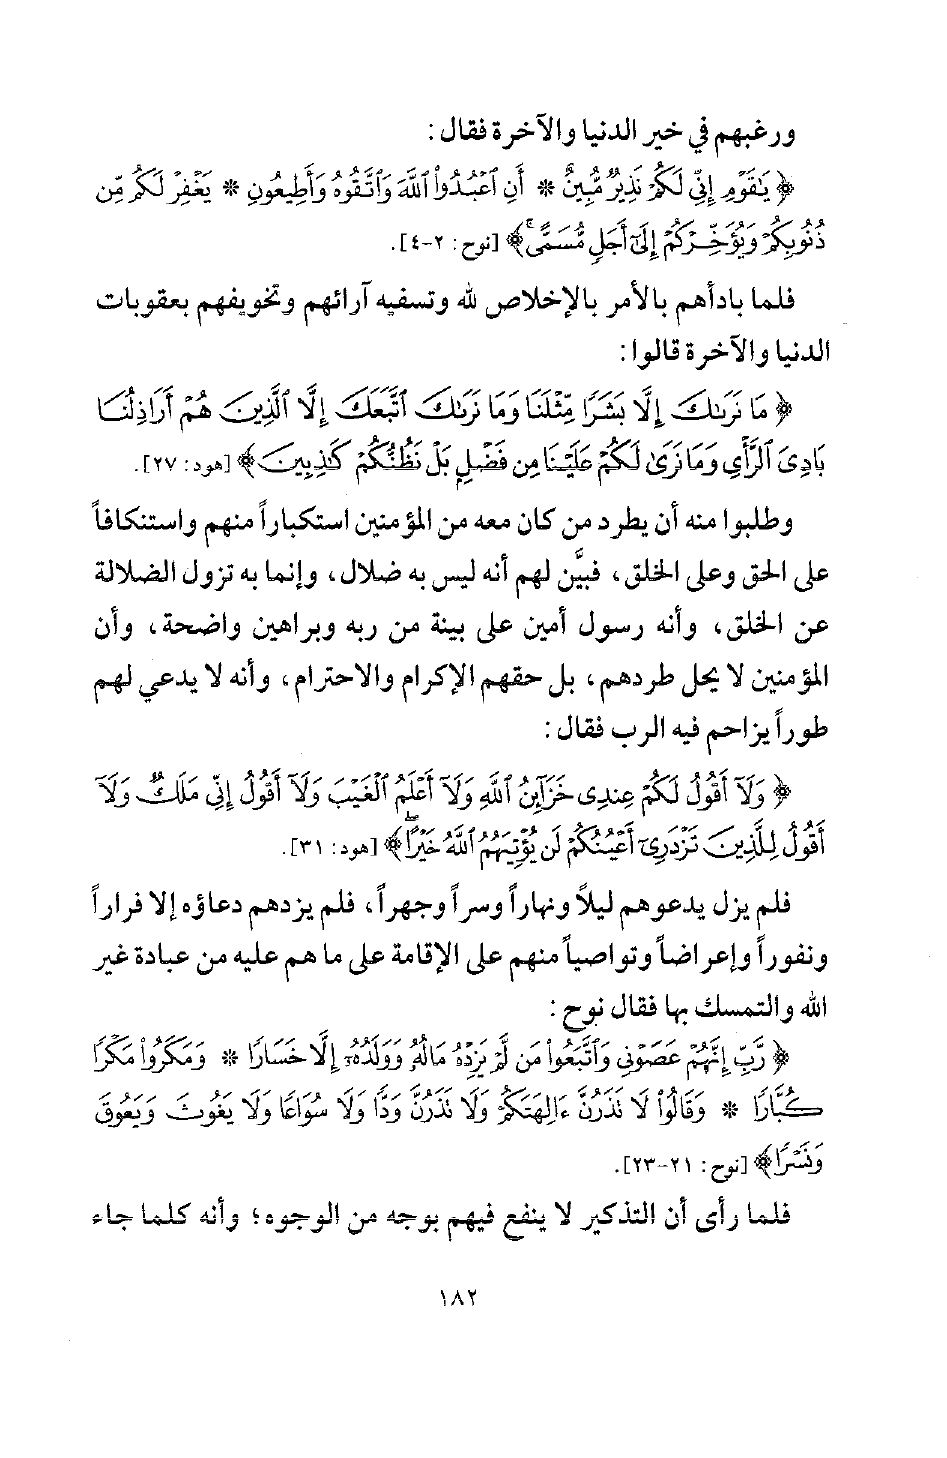 ورغبهم في خير الدنيا والآخرة فقال :
﴿ يَٰقَوْمِ إِنِّي لَكُمْ نَذِيرٌ مُّبِينٌ * أَنِ ٱعْبُدُوا۟ ٱللَّهَ وَٱتَّقُوهُ وَأَطِيعُونِ * يَغْفِرْ لَكُم مِّن
ذُنُوبِكُمْ وَيُؤَخِّرْكُمْ إِلَىٰٓ أَجَلٍ مُّسَمًّىۚ ﴾ [نوح : ٢-٤].
فلما بادأهم بالأمر بالإخلاص لله وتسفيه آرائهم وتخويفهم بعقوبات
الدنيا والآخرة قالوا :
﴿ مَا نَرَىٰكَ إِلَّا بَشَرًا مِّثْلَنَا وَمَا نَرَىٰكَ ٱتَّبَعَكَ إِلَّا ٱلَّذِينَ هُمْ أَرَاذِلُنَا
بَادِىَ ٱلرَّأْىِ وَمَا نَرَىٰ لَكُمْ عَلَيْنَا مِن فَضْلٍ بَلْ نَظُنُّكُمْ كَٰذِبِينَ ﴾ [هود : ٢٧].
وطلبوا منه أن يطرد من كان معه من المؤمنين استكباراً منهم واستنكافاً
على الحق وعلى الخلق، فبيَّن لهم أنه ليس به ضلال، وإنما به تزول الضلالة
عن الخلق، وأنه رسول أمين على بينة من ربه وبراهين واضحة، وأن
المؤمنين لا يحل طردهم، بل حقهم الإكرام والاحترام، وأنه لا يدعي لهم
طوراً يزاحم فيه الرب فقال :
﴿ وَلَآ أَقُولُ لَكُمْ عِندِى خَزَآئِنُ ٱللَّهِ وَلَآ أَعْلَمُ ٱلْغَيْبَ وَلَآ أَقُولُ إِنِّى مَلَكٌ وَلَآ
أَقُولُ لِلَّذِينَ تَزْدَرِىٓ أَعْيُنُكُمْ لَن يُؤْتِيَهُمُ ٱللَّهُ خَيْرًاۖ ﴾ [هود : ٣١].
فلم يزل يدعوهم ليلاً ونهاراً وسراً وجهراً، فلم يزدهم دعاؤه إلا فراراً
ونفوراً وإعراضاً وتواصياً منهم على الإقامة على ما هم عليه من عبادة غير
الله والتمسك بها فقال نوح :
﴿ رَّبِّ إِنَّهُمْ عَصَوْنِى وَٱتَّبَعُوا۟ مَن لَّمْ يَزِدْهُ مَالُهُۥ وَوَلَدُهُۥٓ إِلَّا خَسَارًا * وَمَكَرُوا۟ مَكْرًا
كُبَّارًا * وَقَالُوا۟ لَا تَذَرُنَّ ءَالِهَتَكُمْ وَلَا تَذَرُنَّ وَدًّا وَلَا سُوَاعًا وَلَا يَغُوثَ وَيَعُوقَ
وَنَسْرًا ﴾ [نوح : ٢١-٢٣].
فلما رأى أن التذكير لا ينفع فيهم بوجه من الوجوه؛ وأنه كلما جاء
١٨٢